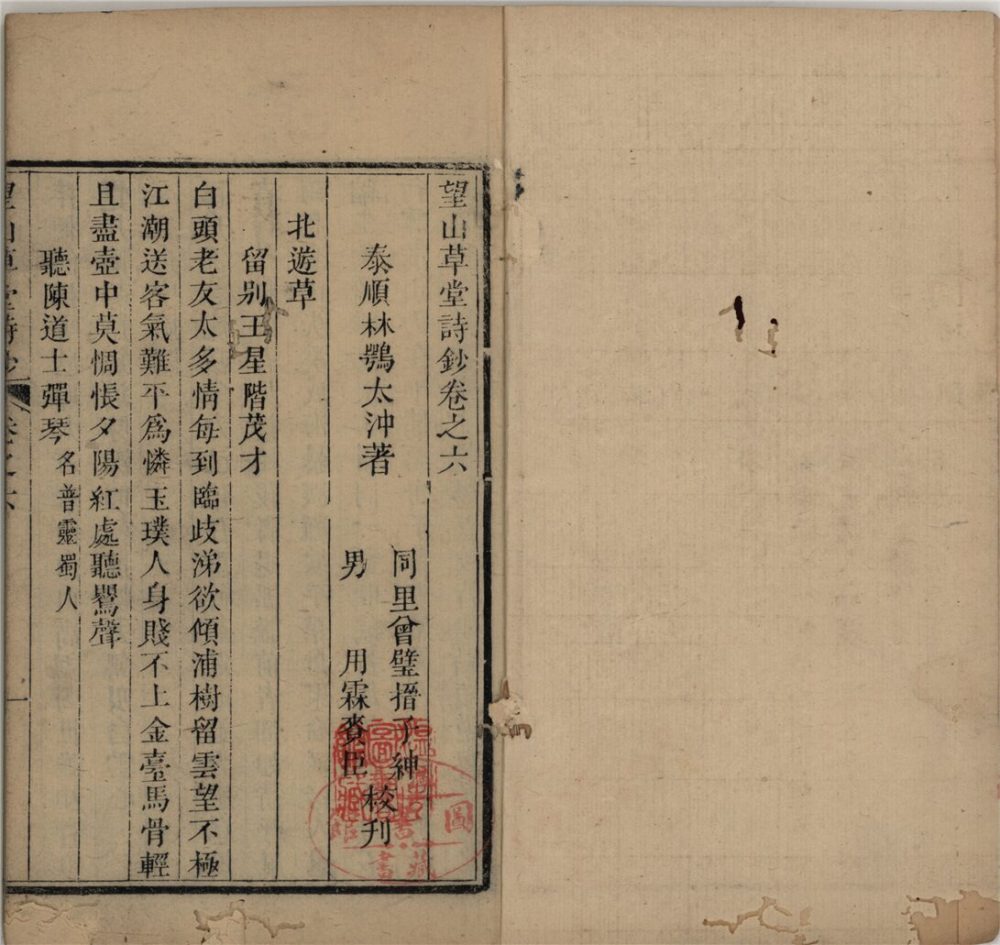 望山草堂詩鈔卷之六
泰順林鶚太沖著
同里曾璧搢子紳
男　用霖賚臣
校刊
北遊草
留别王星階茂才
白頭老友太多情每到臨歧涕欲傾浦樹留雲望不極
江潮送客氣難平爲憐玉璞人身賤不上金臺馬骨輕
且盡壺中莫惆悵夕陽紅處聽鸎聲
聽陳道士彈琴名普靈蜀人
望山草堂詩鈔 卷之六 一